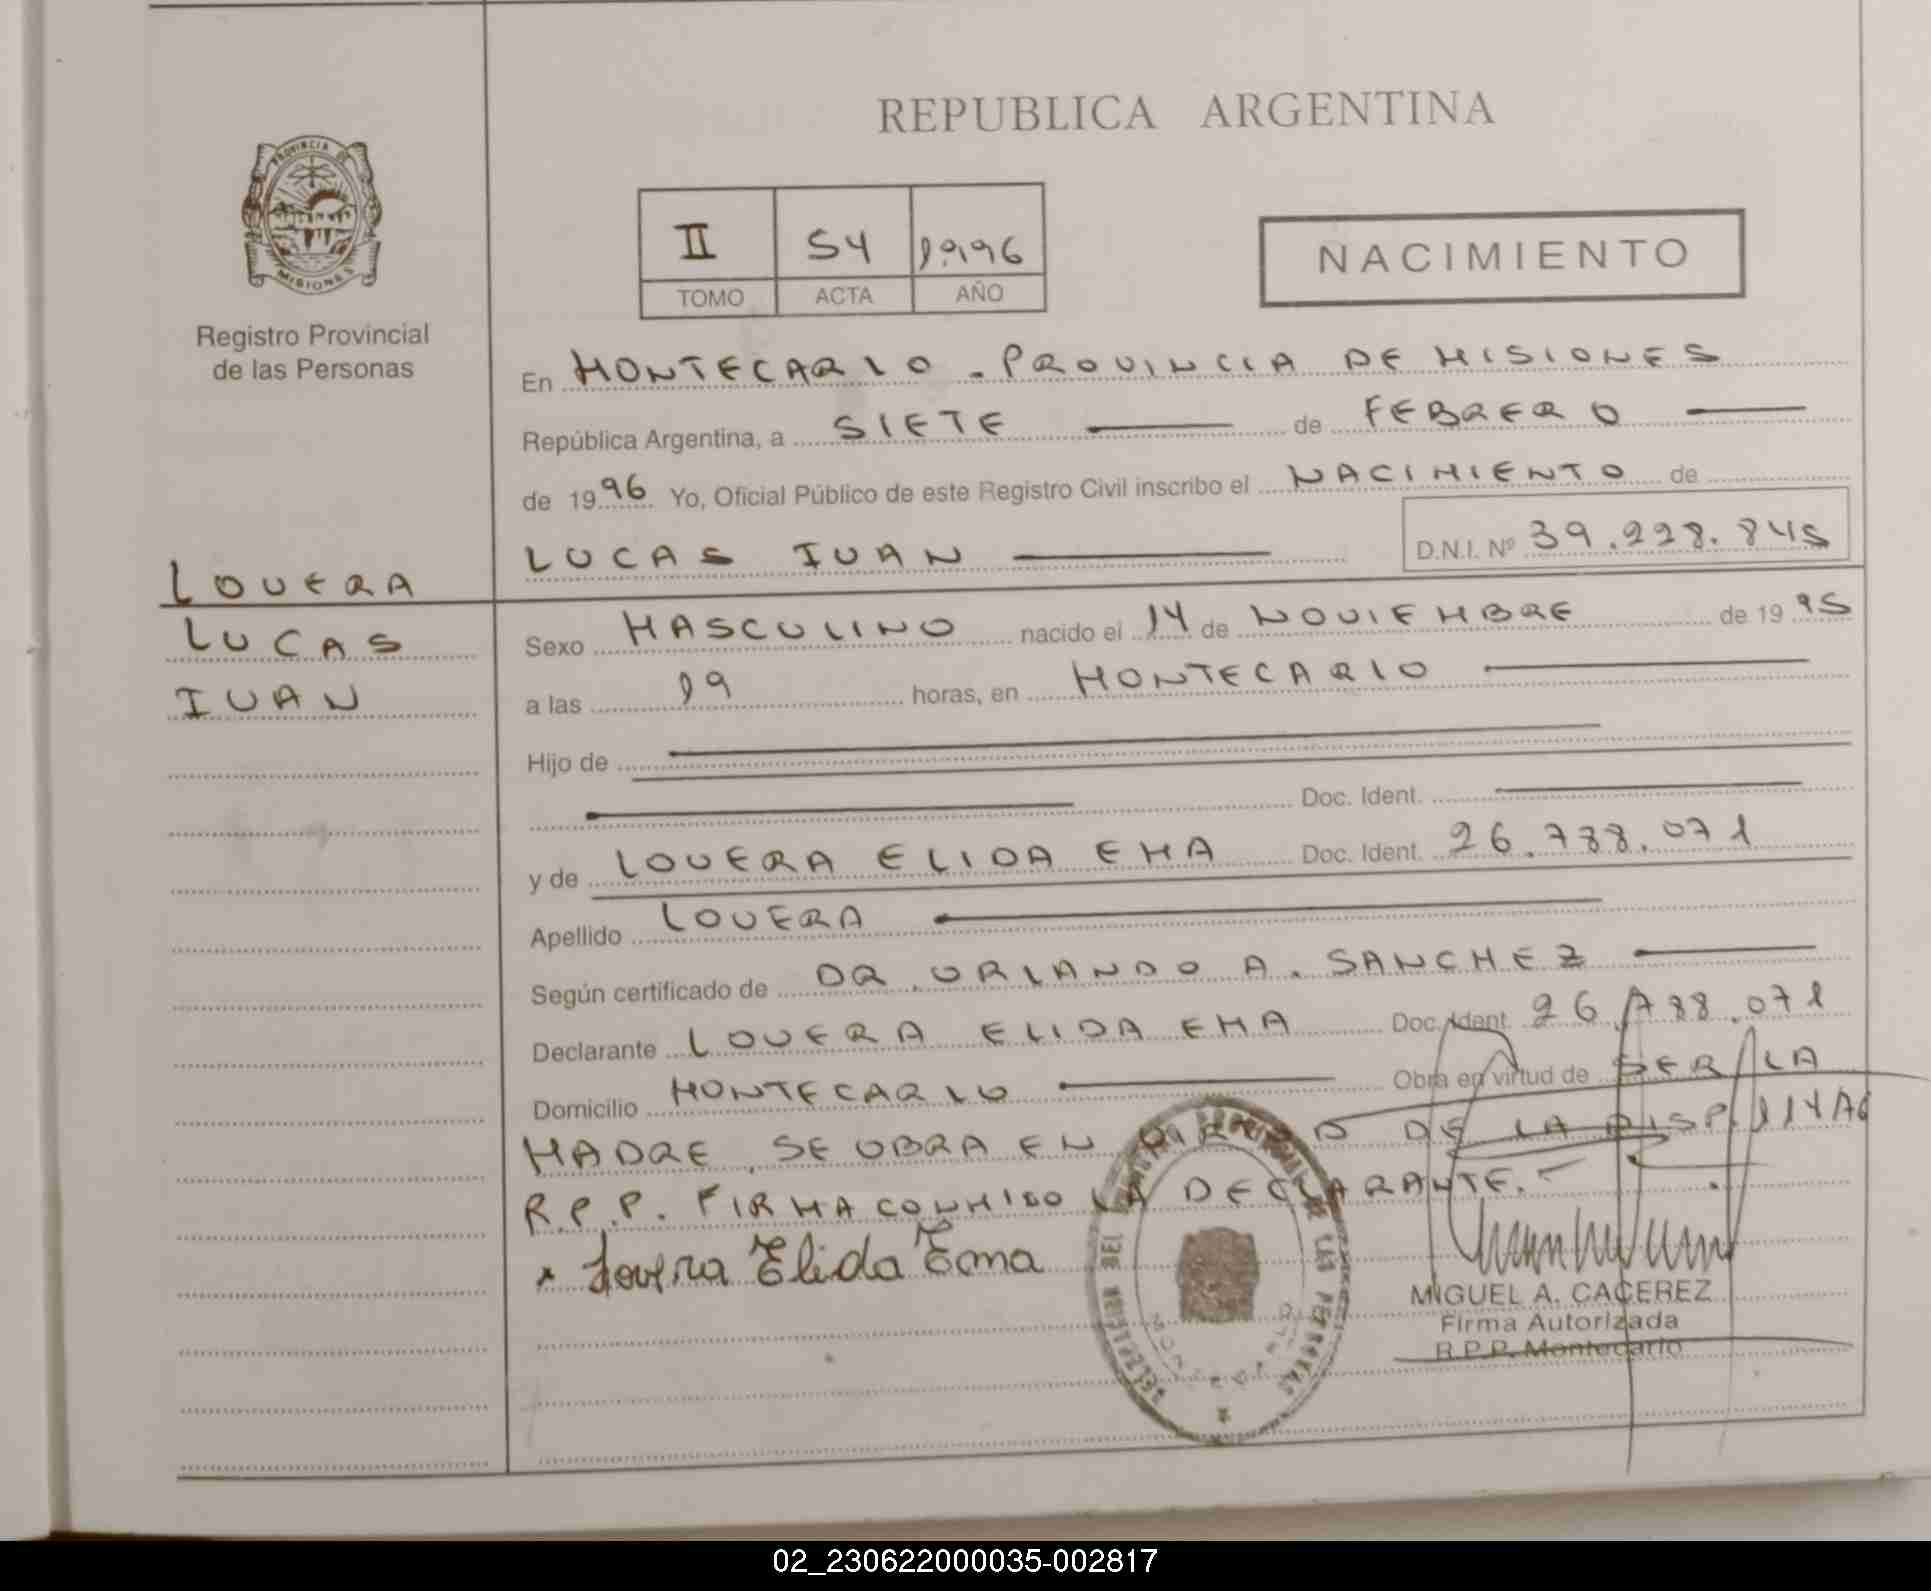 REPUBLICA ARGENTINA
PROVINCIA DE
MISIONES
Registro Provincial
de las Personas
II 54 1.996
TOMO ACTA AÑO
NACIMIENTO
En MONTECARLO . PROVINCIA DE MISIONES
República Argentina, a SIETE de FEBRERO
de 1996 Yo, Oficial Público de este Registro Civil inscribo el NACIMIENTO de
LUCAS IVAN D.N.I. Nº 39.228.845
LOVERA
LUCAS
IVAN
Sexo MASCULINO nacido el 14 de NOVIEMBRE de 1995
a las 19 horas, en MONTECARLO
Hijo de
Doc. Ident.
y de LOVERA ELIDA EMA Doc. Ident. 26.788.071
Apellido LOVERA
Según certificado de DR. ORLANDO A. SANCHEZ
Declarante LOVERA ELIDA EMA Doc. Ident. 26.788.071
Domicilio MONTECARLO Obra en virtud de SER LA
MADRE. SE OBRA EN DE LA DISP.
R.P.P. FIRMA CONMIGO LA DECLARANTE.
Lovera Elida Ema
MIGUEL A. CACEREZ
Firma Autorizada
R.P.P. Montecarlo
02_230622000035-002817